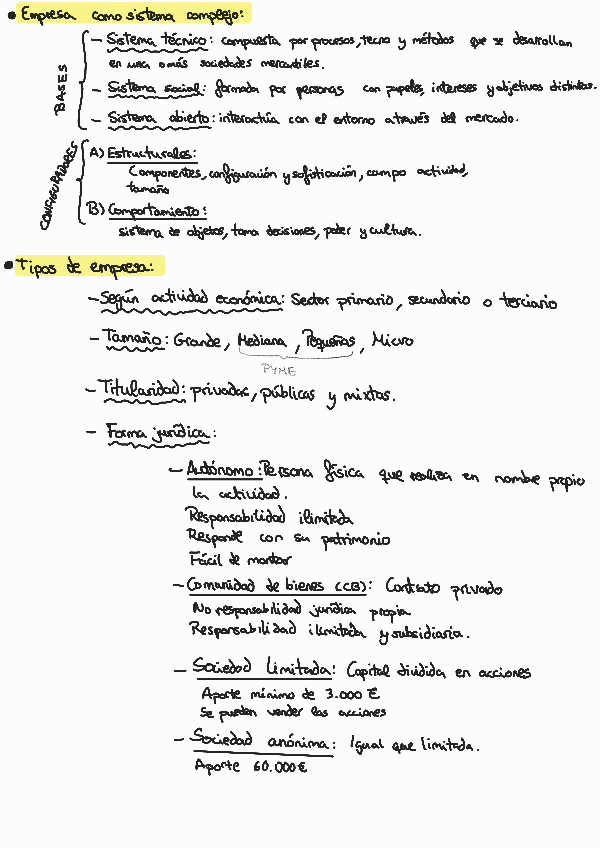 • Empresa como sistema complejo:
BASES
– Sistema técnico: compuesta por procesos, tecno y métodos que se desarrollan
en una o más sociedades mercantiles.
– Sistema social: formada por personas con papeles, intereses y objetivos distintos.
– Sistema abierto: interactúa con el entorno a través del mercado.
CONFIGURADORES
A) Estructurales:
Componentes, configuración y sofisticación, campo actividad,
tamaño
B) Comportamiento:
sistema de objetos, toma decisiones, poder y cultura.
• Tipos de empresa:
– Según actividad económica: Sector primario, secundario o terciario
– Tamaño: Grande, Mediana, Pequeñas, Micro
PYME
– Titularidad: privadas, públicas y mixtas.
– Forma jurídica:
– Autónomo: Persona física que realiza en nombre propio
la actividad.
Responsabilidad ilimitada
Responde con su patrimonio
Fácil de montar
– Comunidad de bienes (CB): Contrato privado
No responsabilidad jurídica propia
Responsabilidad ilimitada y subsidiaria.
– Sociedad limitada: Capital dividida en acciones
Aporte mínimo de 3.000 €
Se pueden vender las acciones
– Sociedad anónima: Igual que limitada.
Aporte 60.000 €